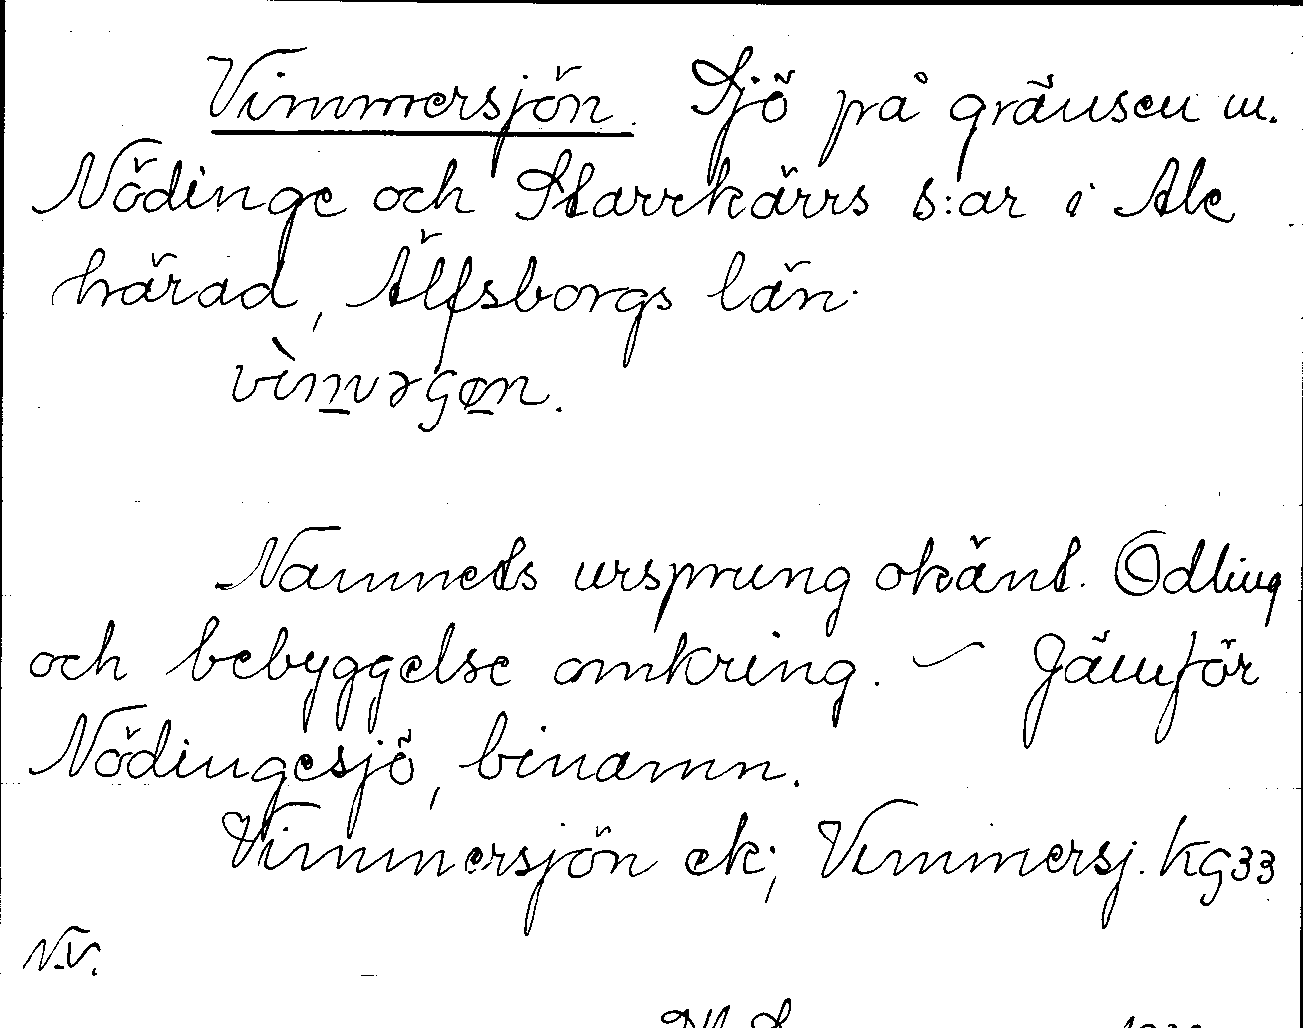 Vimmersjön. Sjö på gränsen m.
Nödinge och Starrkärrs s:ar i Ale
härad, Älfsborgs län.
Namnets ursprung okänt. Odling
och bebyggelse omkring. – Jämför
Nödingesjö, binamn.
Vimmersjön ek; Vimmersj. KG33
N.V.